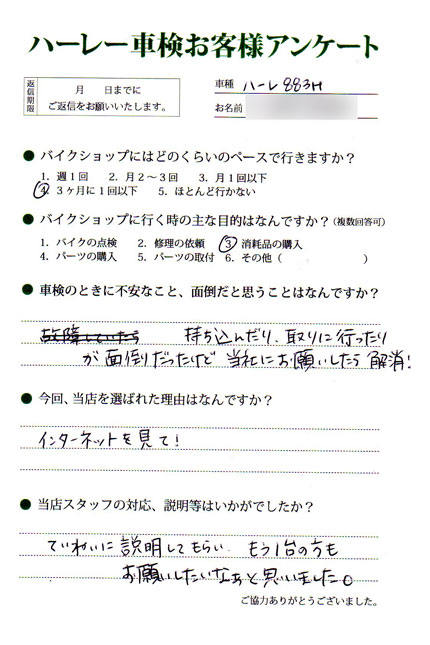 ハーレー車検お客様アンケート
返信期限
月　　日までに
ご返信をお願いいたします。
車種 ハーレ 883H
お名前
● バイクショップにはどのくらいのペースで行きますか？
1. 週1回　2. 月2～3回　3. 月1回以下
4. 3ヶ月に1回以下　5. ほとんど行かない
● バイクショップに行く時の主な目的はなんですか？（複数回答可）
1. バイクの点検　2. 修理の依頼　3. 消耗品の購入
4. パーツの購入　5. パーツの取付　6. その他（　　　　　　）
● 車検のときに不安なこと、面倒だと思うことはなんですか？
故障していたら　持ち込んだり、取りに行ったり
が 面倒だったけど 当社にお願いしたら 解消！
● 今回、当店を選ばれた理由はなんですか？
インターネットを見て！
● 当店スタッフの対応、説明等はいかがでしたか？
ていねいに 説明してもらい、もう1台の方も
お願いしたいなぁと思いました。
ご協力ありがとうございました。